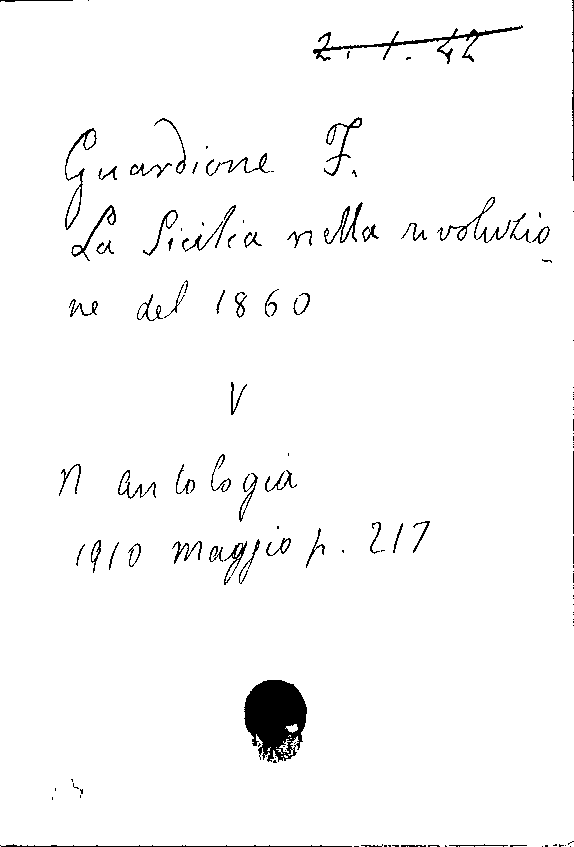 2. 1. 42
Guardione F.
La Sicilia nella rivoluzio
ne del 1860
V
N antologia
1910 maggio p. 217